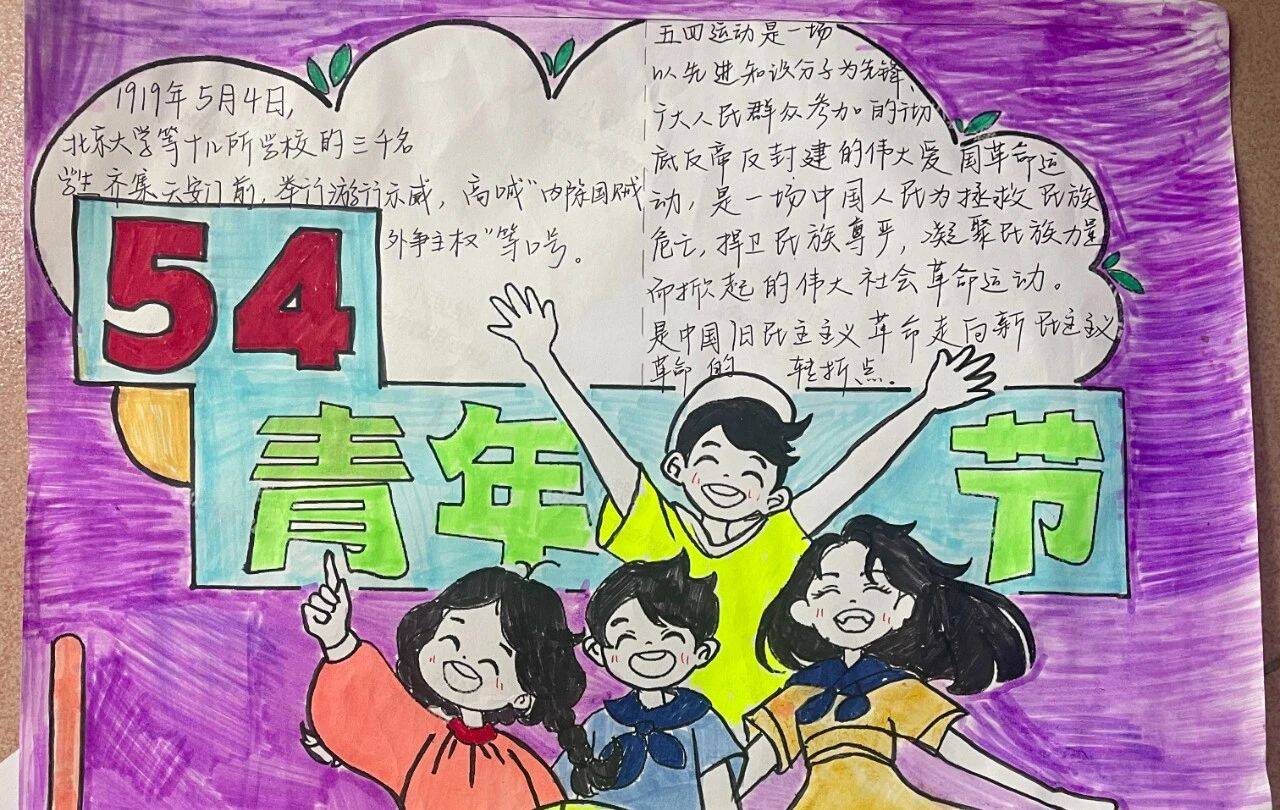 1919年5月4日,
北京大学等十几所学校的三千名
学生齐集天安门前,举行游行示威,高喊"内除国贼
外争主权"等口号。
五四运动是一场
以先进知识分子为先锋、
广大人民群众参加的彻
底反帝反封建的伟大爱国革命运
动,是一场中国人民为拯救民族
危亡,捍卫民族尊严,凝聚民族力量
而掀起的伟大社会革命运动。
是中国旧民主主义革命走向新民主主义
革命的 转折点.
54
青年节